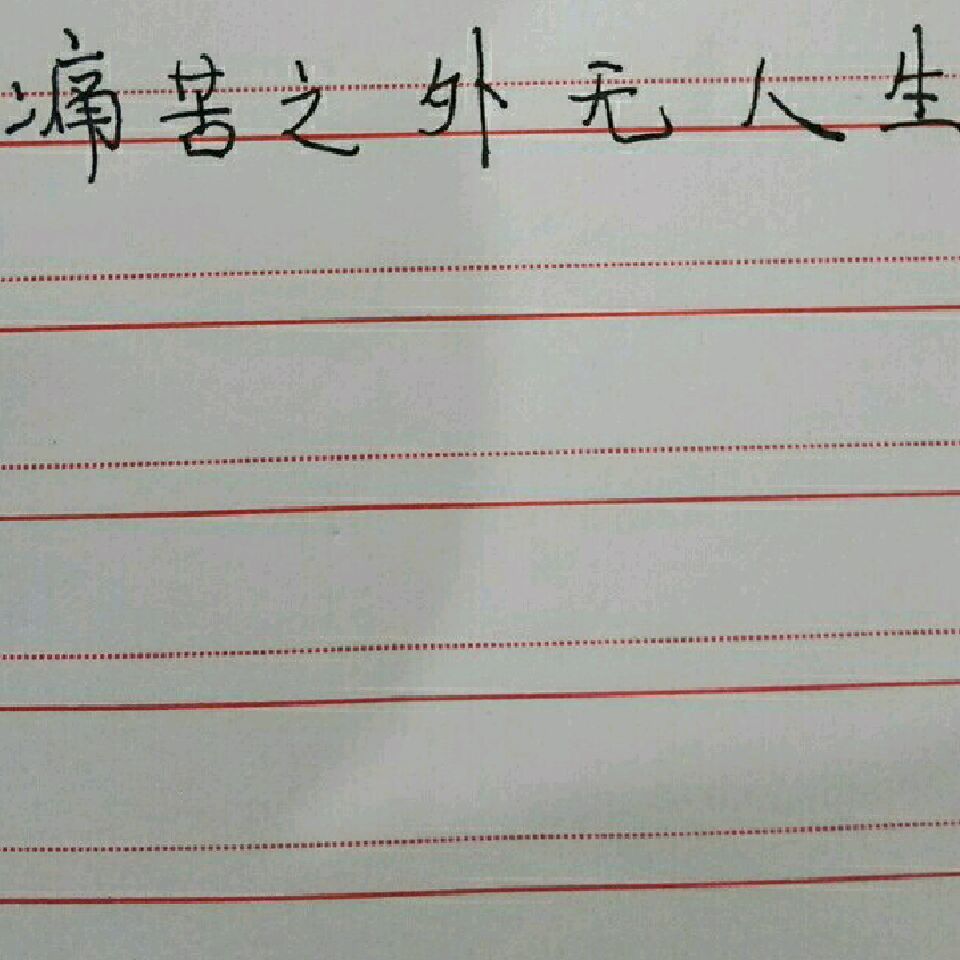 痛苦之外无人生